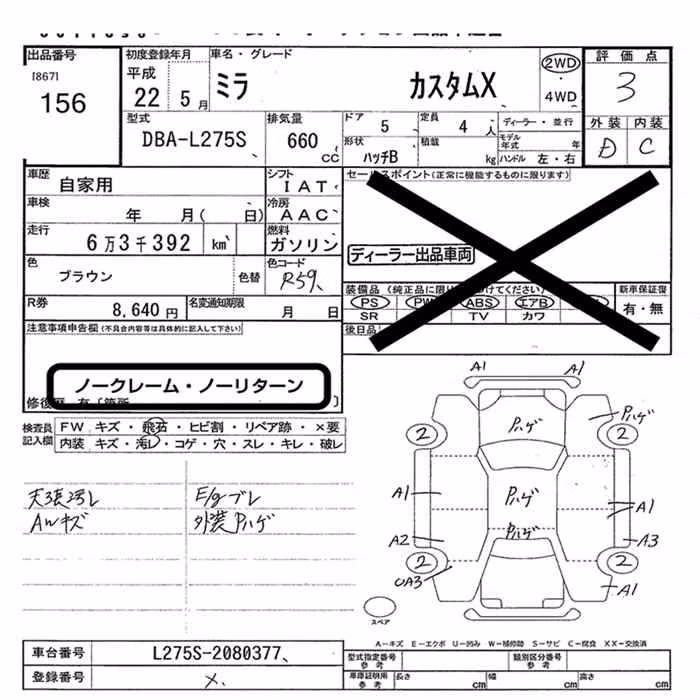 出品番号
[867]
156
初度登録年月
平成
22 5 月
車名・グレード
ミラ カスタムX
2WD
・
4WD
評価点
3
外装 内装
D C
型式
DBA-L275S
排気量
660
CC
ドア 5
定員 4 人
ディーラー・並行
形状
ハッチB
積載
kg
モデル年式 年
ハンドル 左・右
車歴
自家用
シフト
IAT
車検
年 月( 日)
冷房
AAC
走行
6万3千392 km
燃料
ガソリン
色
ブラウン
色替
色コード
R59
R券
8,640 円
名変通知期限
月 日
セールスポイント(正常に機能するものに限ります)
ディーラー出品車両
装備品 (純正品に限り
けてください)
新車保証書
有・無
PS PW ABS エアB
SR TV カワ
後日品
注意事項申告欄(不具合内容等は具体的に記入して下さい)
ノークレーム・ノーリターン
修復歴 有〔箇所 〕
検査員記入欄
FW キズ・飛石・ヒビ割・リペア跡・×要
内装 キズ・汚レ・コゲ・穴・スレ・キレ・破レ
天張汚レ
AWキズ
E/gブレ
外装Pハゲ
A1 A1
Pハゲ Pハゲ
2 2
A1 Pハゲ A1
A2 Pハゲ A3
2 2
UA3 A1
スペア
A-キズ E-エクボ U-凹み W-補修跡 S-サビ C-腐食 XX-交換済
車台番号
L275S-2080377
登録番号
×
型式指定番号
参考
類別区分番号
参考
車庫証明用
参考
長さ cm
幅 cm
高さ cm